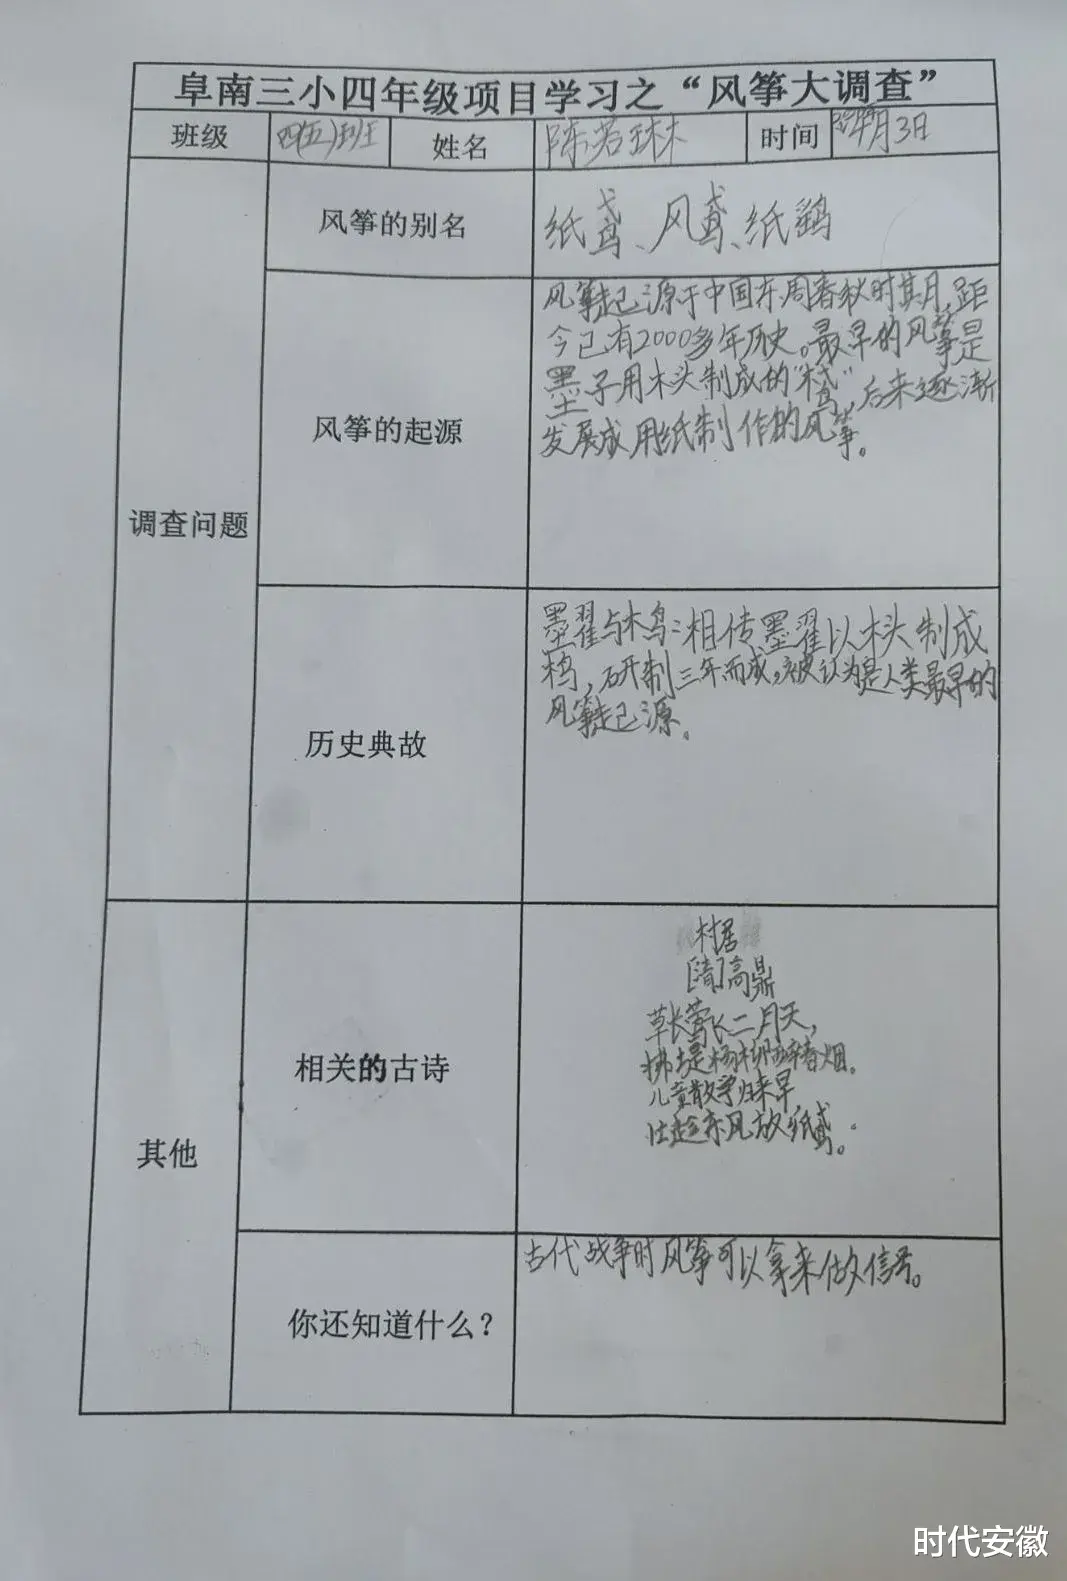 阜南三小四年级项目学习之“风筝大调查”
班级 四(五)班 姓名 陈若琳 时间 4月3日
调查问题
风筝的别名
纸鸢、风鸢、纸鹞
风筝的起源
风筝起源于中国东周春秋时期,距
今已有2000多年历史。最早的风筝是
墨子用木头制成的“木鸢”,后来逐渐
发展成用纸制作的风筝。
历史典故
墨翟与木鸟:相传墨翟以木头制成
木鸟,研制三年而成,被认为是人类最早的
风筝起源。
其他
相关的古诗
村居
[清]高鼎
草长莺长二月天,
拂堤杨柳醉春烟。
儿童散学归来早
忙趁东风放纸鸢。
你还知道什么?
古代战争时风筝可以拿来做信号。
时代安徽